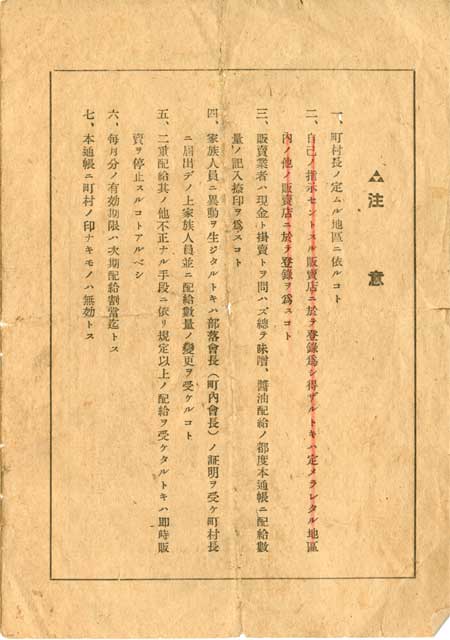 △注意
一、町村長ノ定ムル地區ニ依ルコト
二、自己ノ指示セントスル販賣店ニ於テ登錄爲シ得ザルトキハ定メラレタル地區
內ノ他ノ販賣店ニ於テ登錄ヲ爲スコト
三、販賣業者ハ現金ト掛賣トヲ問ハズ總テ味噌、醬油配給ノ都度本通帳ニ配給數
量ノ記入捺印ヲ爲スコト
四、家族人員ニ異動ヲ生ジタルトキハ部落會長(町內會長)ノ証明ヲ受ケ町村長
ニ届出デノ上家族人員並ニ配給數量ノ變更ヲ受ケルコト
五、二重配給其ノ他不正ナル手段ニ依リ規定以上ノ配給ヲ受ケタルトキハ即時販
賣ヲ停止スルコトアルベシ
六、每月分ノ有効期限ハ次期配給割當迄トス
七、本通帳ニ町村ノ印ナキモノハ無効トス